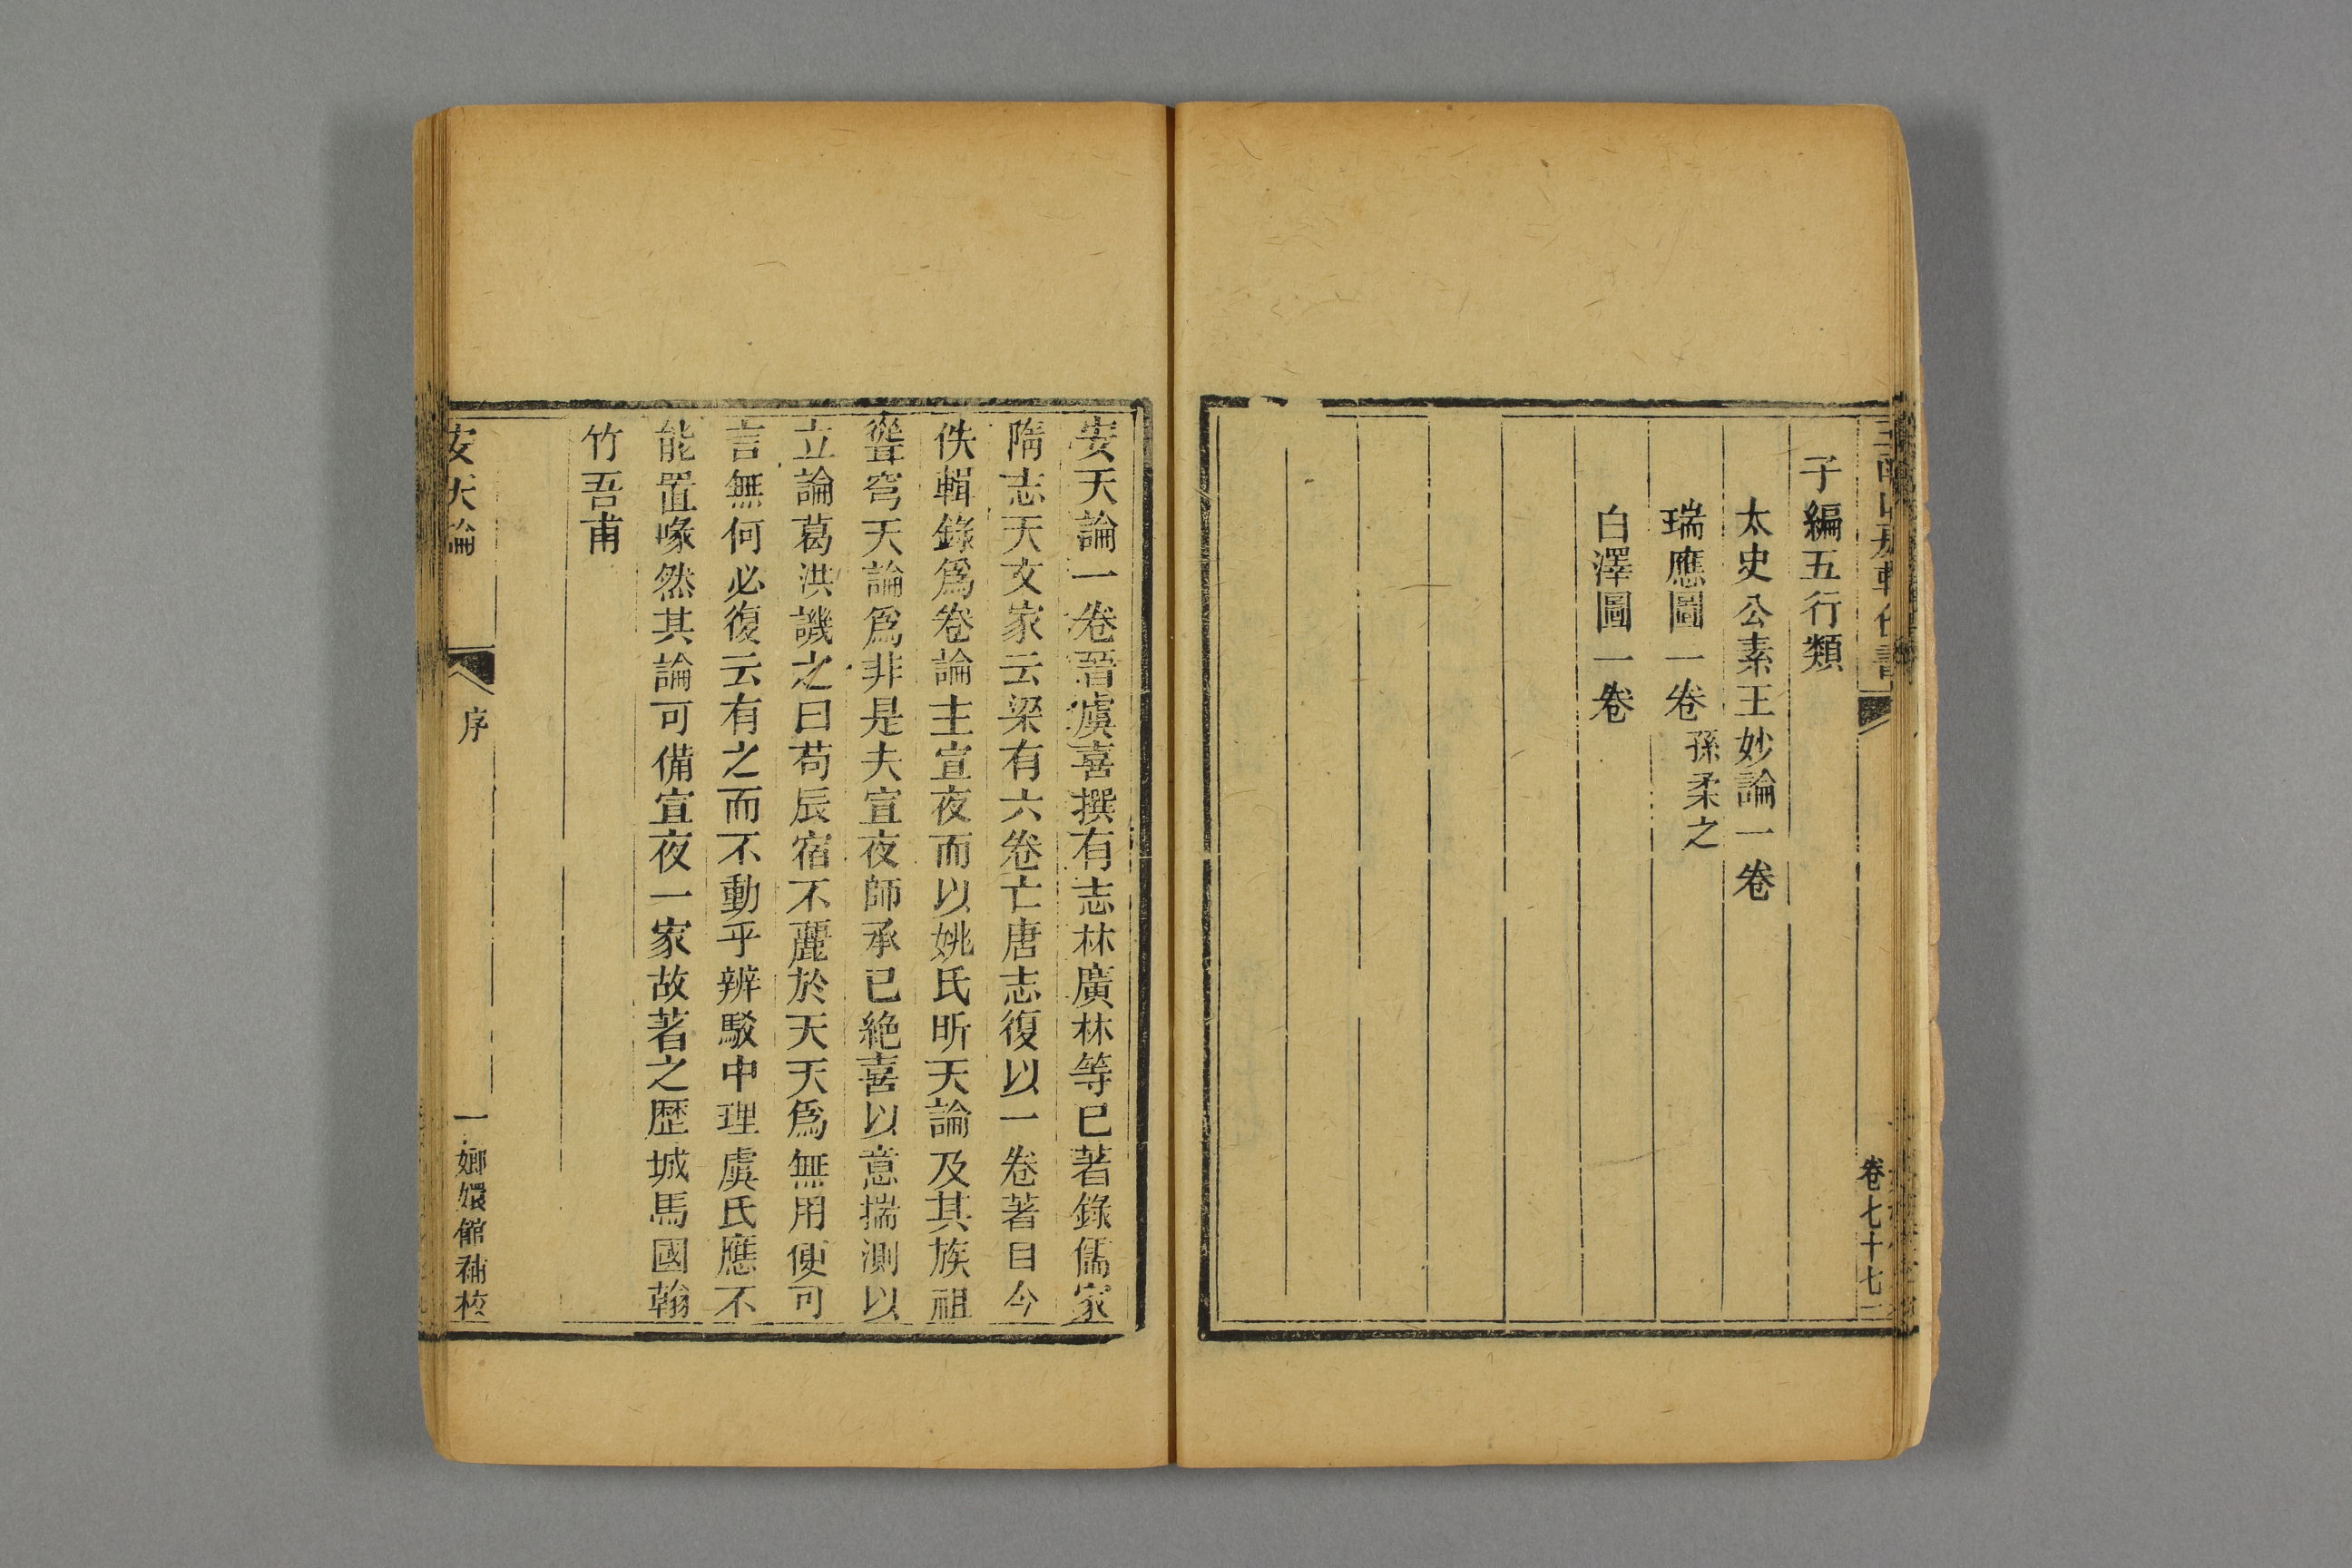 子編五行類
太史公素王妙論一卷
瑞應圖一卷孫柔之
白澤圖一卷
卷七十七
安天論一卷晉虞喜撰有志林廣林等已著錄儒家
隋志天文家云梁有六卷亡唐志復以一卷著目今
佚輯錄爲卷論主宣夜而以姚氏昕天論及其族祖
聳穹天論爲非是夫宣夜師承已絶喜以意揣測以
立論葛洪譏之曰苟辰宿不麗於天天爲無用便可
言無何必復云有之而不動乎辨駁中理虞氏應不
能置喙然其論可備宣夜一家故著之歷城馬國翰
竹吾甫
安天論
序
一
嫏嬛館補校